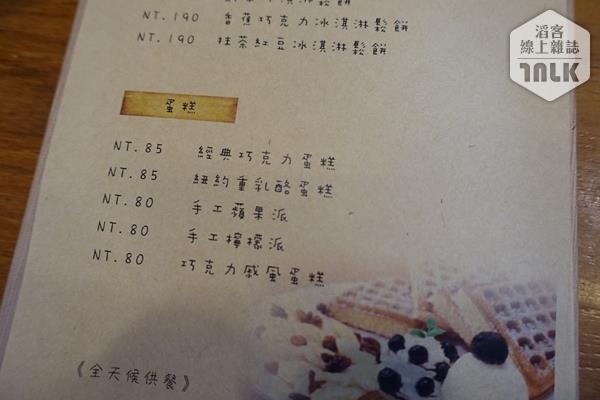 NT.190 香蕉巧克力冰淇淋鬆餅
NT.190 抹茶紅豆冰淇淋鬆餅
蛋糕
NT.85 經典巧克力蛋糕
NT.85 紐約重乳酪蛋糕
NT.80 手工蘋果派
NT.80 手工檸檬派
NT.80 巧克力戚風蛋糕
《全天候供餐》
滔客
線上雜誌
TALK